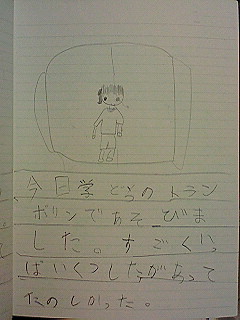 今日学どうのトラン
ポリンであそびま
した。すごくいっ
ぱいくつしたがあって
たのしかった。